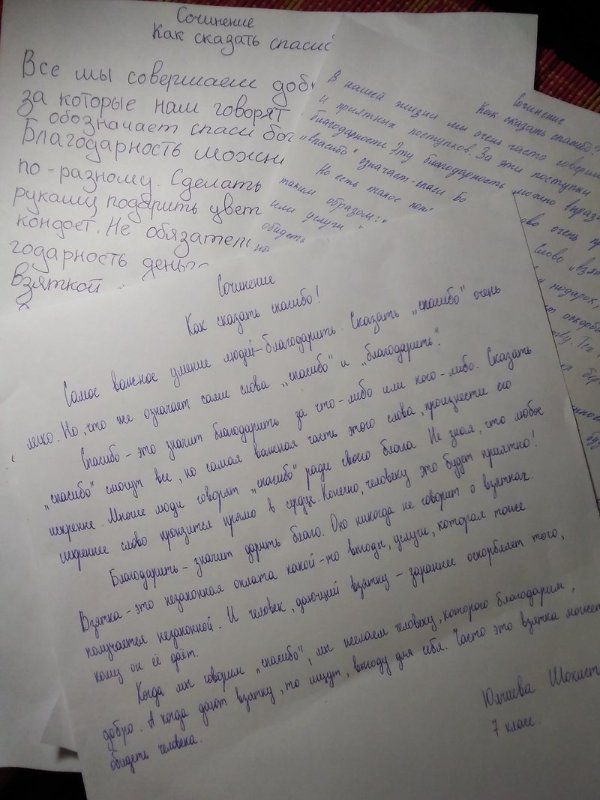 Сочинение
Как сказать спасиб
Все мы совершаем доб
за которые нам говорят
обозначает спаси бог
Благодарность можн
по-разному. Сделать
руками, подарить цвет
конфет. Не обязательно
годарность деньг
взяткой
Сочинение
Как сказать спасибо?
В нашей жизни мы очень часто соверша
и приятных поступков. За эти поступки
благодарности. Эту благодарность можно выраз
"Спасибо" означает - спаси Бо
Но есть такое
таким образом:
или услуги
обидеть
во очень
слово "взят
подарок,
оскорб
Сочинение
Как сказать спасибо!
Самое важное умение людей - благодарить. Сказать "спасибо" очень
легко. Но, что же означает сами слова "спасибо" и "благодарить".
Спасибо - это значит благодарить за что-либо или кого-либо. Сказать
"спасибо" смогут все, но самая важная часть этого слова, произнести его
искренне. Многие люди говорят "спасибо" ради своего блага. Не зная, что любое
искреннее слово пронзится прямо в сердце. Конечно, человеку это будет приятно!
Благодарить - значит дарить благо. Око никогда не говорит о взятках.
Взятка - это незаконная оплата какой-то выгоды, услуги, которая тоже
получается незаконной. И человек, дающий взятку - заранее оскорбляет того,
кому он её даёт.
Когда мы говорим "спасибо", мы желаем человеку, которого благодарим,
добро. А когда дают взятку, то ищут, выгоду для себя. Часто это взятка может
обидеть человека.
Юлчиева
7 класс.